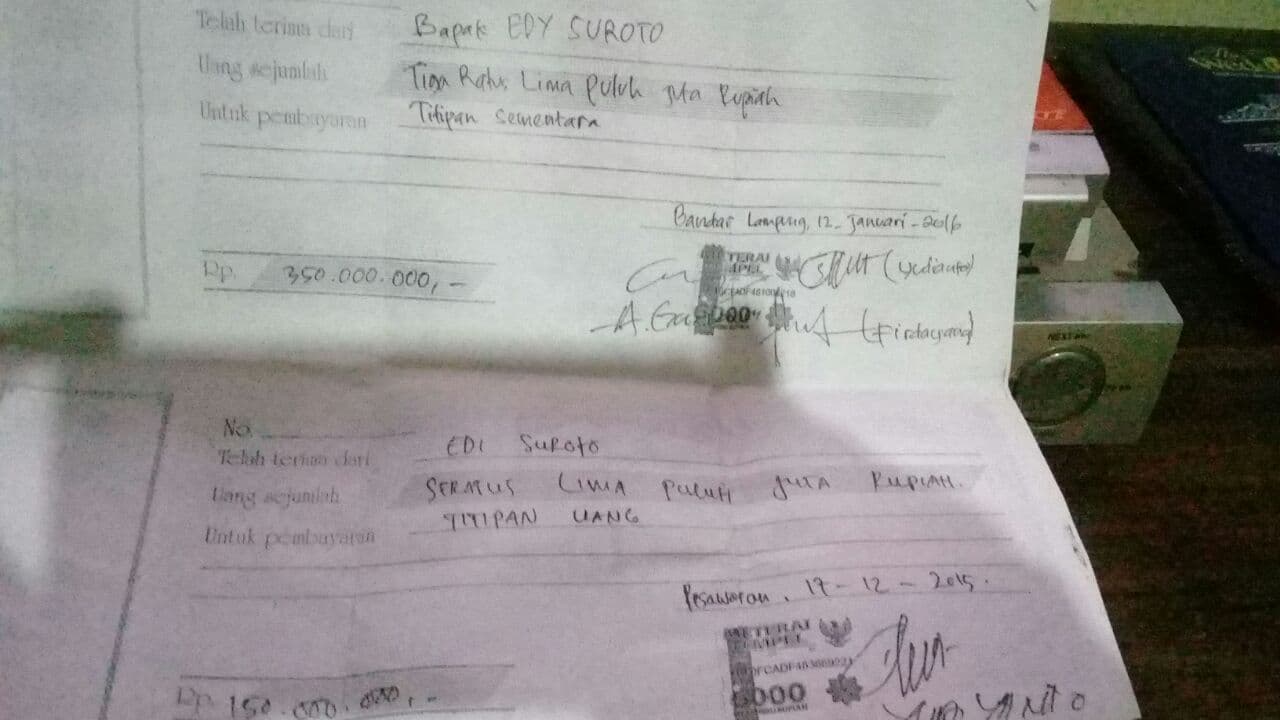 Telah terima dari Bapak EDY SUROTO
Uang sejumlah Tiga Ratus Lima puluh juta Rupiah
Untuk pembayaran Titipan Sementara
Bandar Lampung, 12 - Januari - 2016
METERAI
TEMPEL
Rp. 350.000.000,-
(Yudianto)
(Firdayang)
No.
Telah terima dari EDI SUROTO
Uang sejumlah SERATUS LIMA PULUH JUTA RUPIAH.
Untuk pembayaran TITIPAN UANG
Pesawaran, 17 - 12 - 2015.
METERAI
TEMPEL
6000
Rp 150.000.000,-